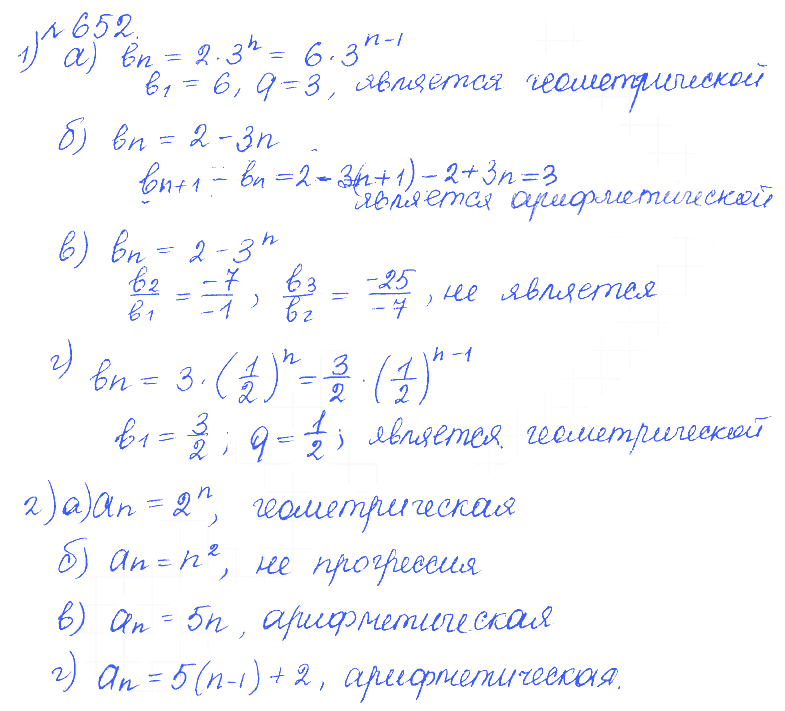 №652.
1) а) bn = 2·3^n = 6·3^(n-1)
b1 = 6, q = 3, является геометрической
б) bn = 2 - 3n
bn+1 - bn = 2 - 3(n+1) - 2 + 3n = 3
является арифметической
в) bn = 2 - 3^n
b2/b1 = -7/-1; b3/b2 = -25/-7, не является
г) bn = 3·(1/2)^n = 3/2·(1/2)^(n-1)
b1 = 3/2; q = 1/2; является геометрической
2) а) an = 2^n, геометрическая
б) an = n^2, не прогрессия
в) an = 5n, арифметическая
г) an = 5(n-1) + 2, арифметическая.